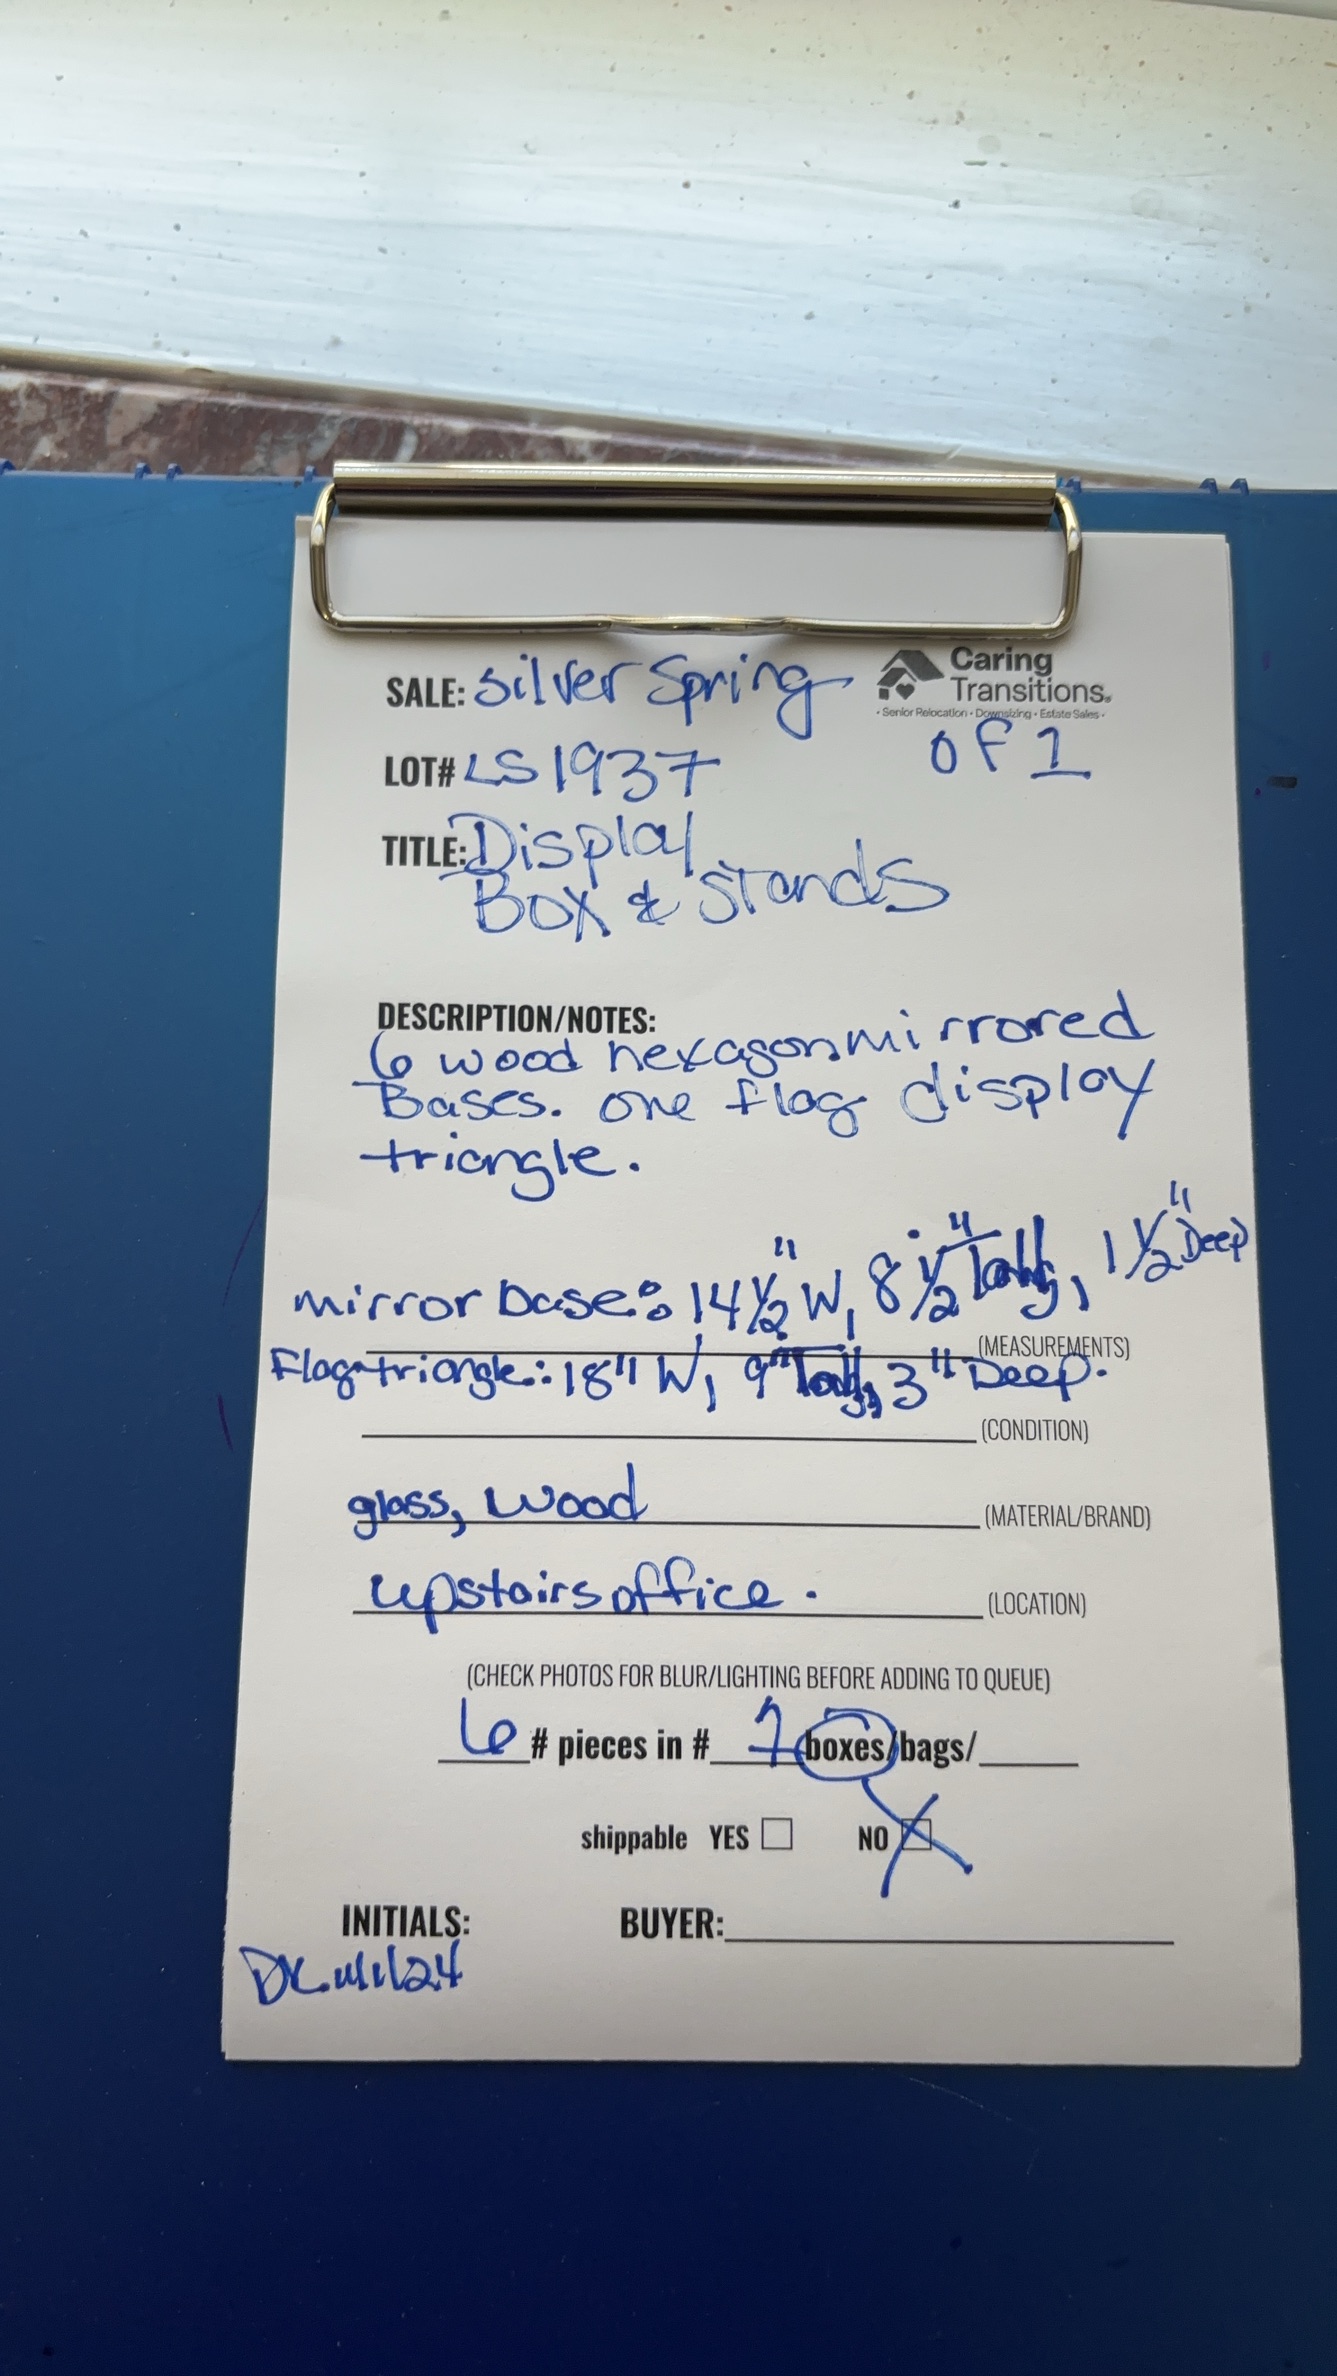 SALE: Silver Spring
Caring
Transitions®
• Senior Relocation • Downsizing • Estate Sales •
LOT# LS1937
OF 1
TITLE: Display
Box & Stands
DESCRIPTION/NOTES:
6 wood hexagon mirrored
Bases. one flag display
triangle.
mirror base: 14 1/2" W, 8 1/2" Tall, 1 1/2" Deep
(MEASUREMENTS)
Flag triangle: 18" W, 9" Tall, 3" Deep.
(CONDITION)
glass, wood (MATERIAL/BRAND)
upstairs office. (LOCATION)
(CHECK PHOTOS FOR BLUR/LIGHTING BEFORE ADDING TO QUEUE)
6 # pieces in # 1 boxes/bags/
shippable YES NO X
INITIALS: BUYER: